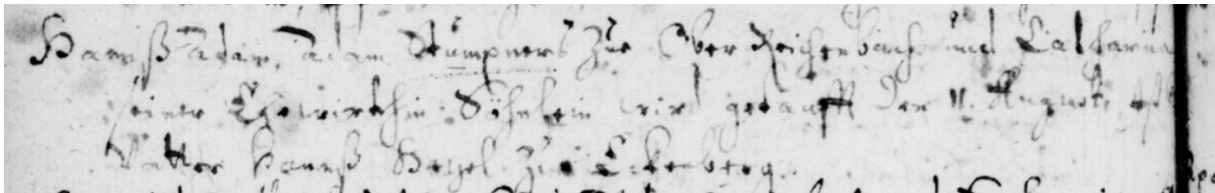 Hannß Adam, Adam Stümpners zue Ober Reichenbach und Catharina
seiner Ehewirthin Söhnlein wird getaufft den 11. Augusti,
Vatter Hannß Hezel zue Eckenberg.